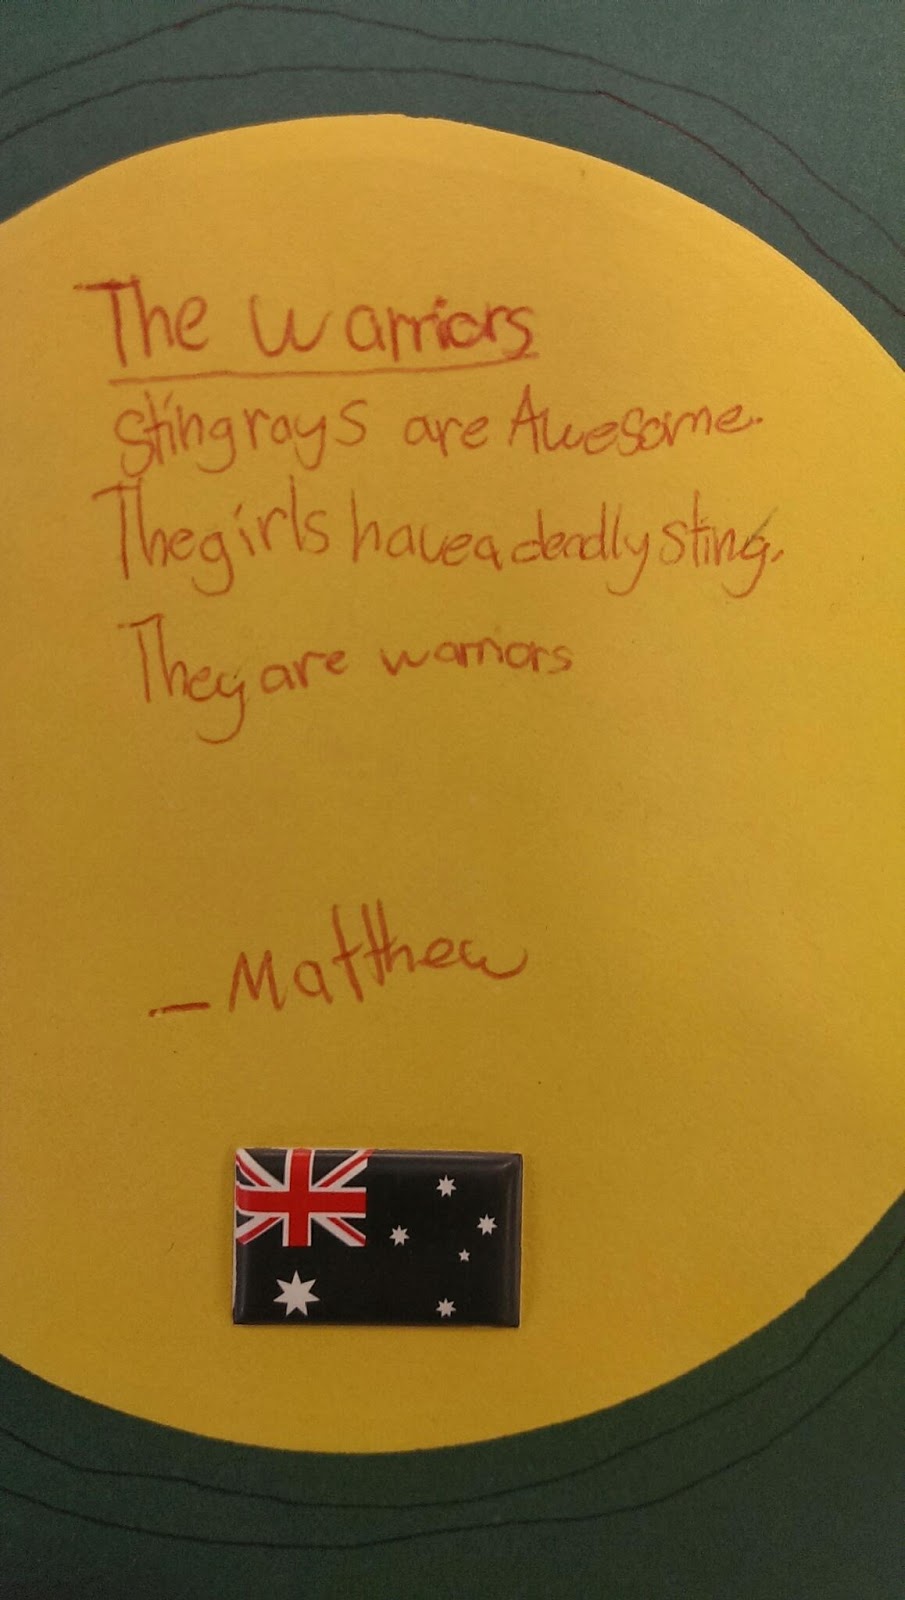 The Warriors
Stingrays are Awesome.
The girls have a deadly sting.
They are warriors
- Matthew